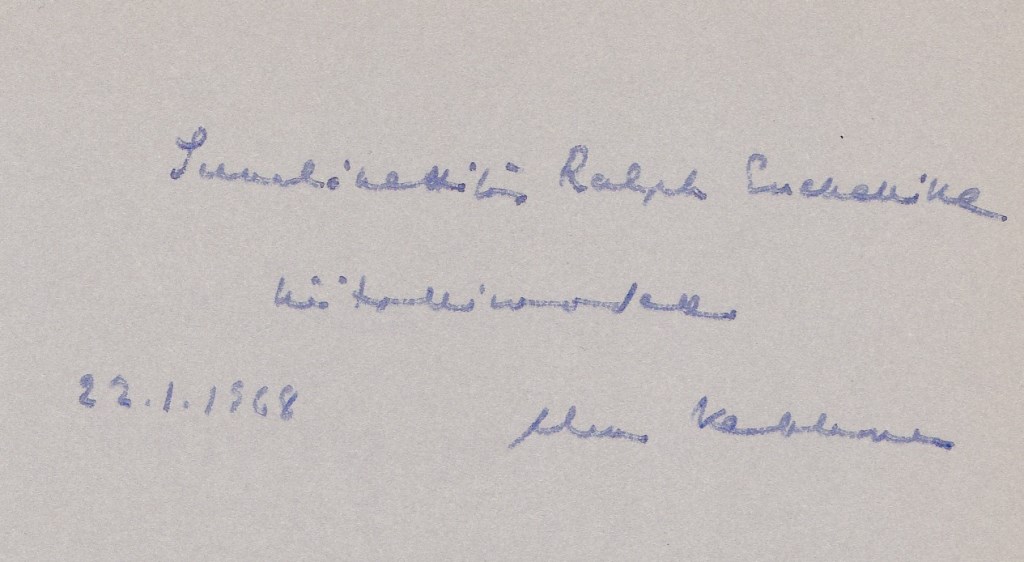 Suurlähettiläs Ralph Enckellille
kiitollisuudella
22.1.1968